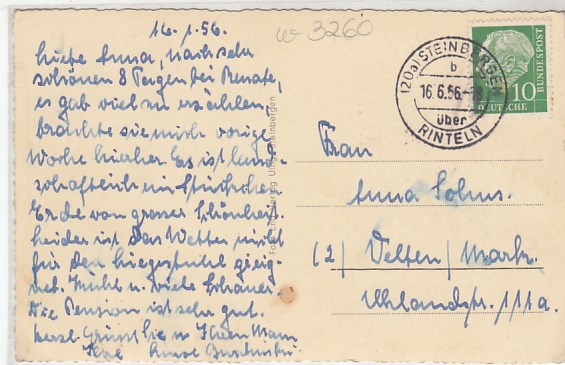 16.1.56.
w 3260
Liebe Anna, nach sehr
schönen 8 Tagen bei Renate,
es gab viel zu erzählen,
brachte sie mich vorige
Woche hierher. Es ist land-
schaftlich ein Stückchen
Erde von grosser Schönheit.
Leider ist das Wetter nicht
für den Liegestuhl geeig-
net. Kühl u. viele Schauer.
Die Pension ist sehr gut.
Herzl. Grüsst Sie u. Ihren Mann
Ihre
(20a) STEINBERGEN
b
16.6.56
über
RINTELN
DEUTSCHE BUNDESPOST
10
Frau
Anna Solms.
(2) Velten/Mark.
Uhlandstr. 111a.